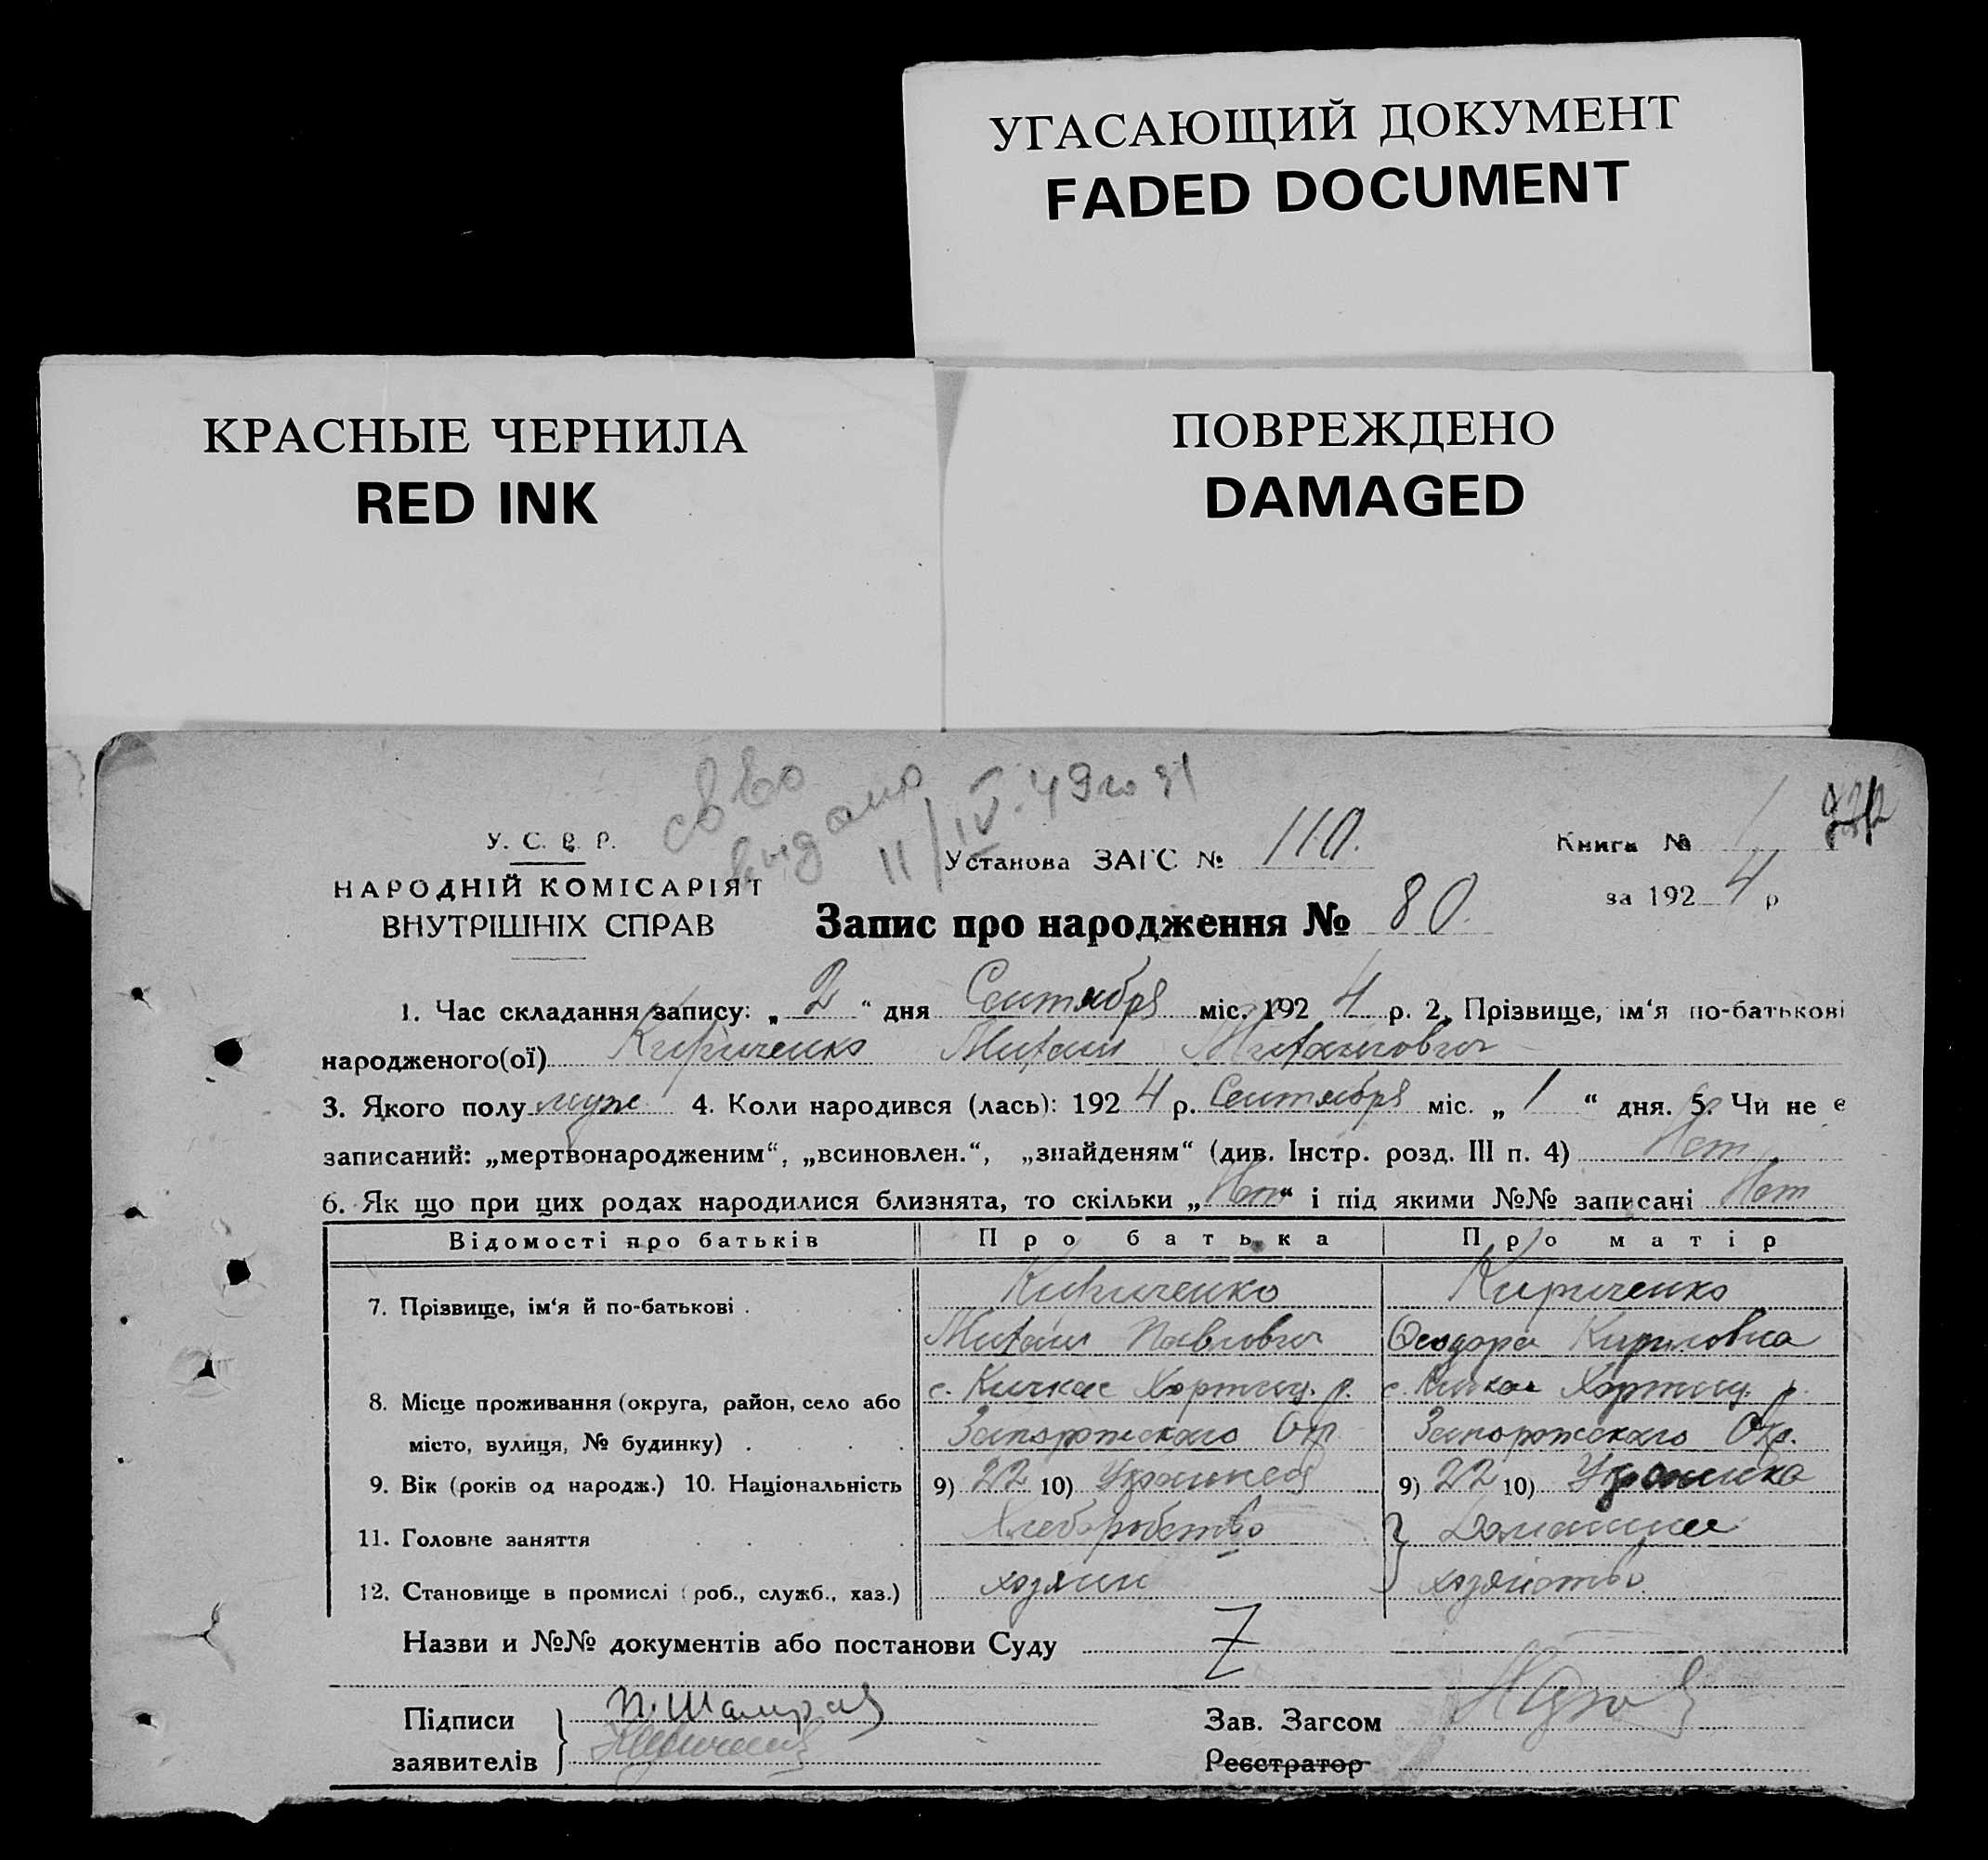 УГАСАЮЩИЙ ДОКУМЕНТ
FADED DOCUMENT
КРАСНЫЕ ЧЕРНИЛА
RED INK
ПОВРЕЖДЕНО
DAMAGED
выдано
11/IV.49
У. С. Р. Р.
НАРОДНІЙ КОМІСАРІЯТ
ВНУТРІШНІХ СПРАВ
Установа ЗАГС № 110.
Книга № 1
за 1924 р
Запис про народження № 80.
1. Час складання запису: „2“ дня Сентября міс. 1924 р. 2. Прізвище, ім‘я по-батькові
народженого(ої) Кириченко Михаил Михайлович
3. Якого полу муж 4. Коли народився (лась): 1924 р. Сентября міс. „1“ дня. 5. Чи не є
записаний: „мертвонародженим“, „всиновлен.“, „знайденям“ (див. Інстр. розд. III п. 4) Нет
6. Як що при цих родах народилися близнята, то скільки „Нет“ і під якими №№ записані Нет
Відомості про батьків Про батька Про матір
7. Прізвище, ім‘я й по-батькові . Кириченко Кириченко
Михаил Павлович Феодора Кириловна
8. Місце проживання (округа, район, село або с. Кичкас Хортиц. р. с. Кичкас Хортиц. р.
місто, вулиця, № будинку) . Запорожскаго Окр Запорожскаго Окр.
9. Вік (років од народж.) 10. Національність 9) 22 10) Украинец 9) 22 10) Украинка
11. Головне заняття Хлеборобство Домашнее
12. Становище в промислі (роб., служб., хаз.) хозяин хозяйство
Назви и №№ документів або постанови Суду Z
Підписи П. Шамрай
заявителів
Зав. Загсом
Реєстратор